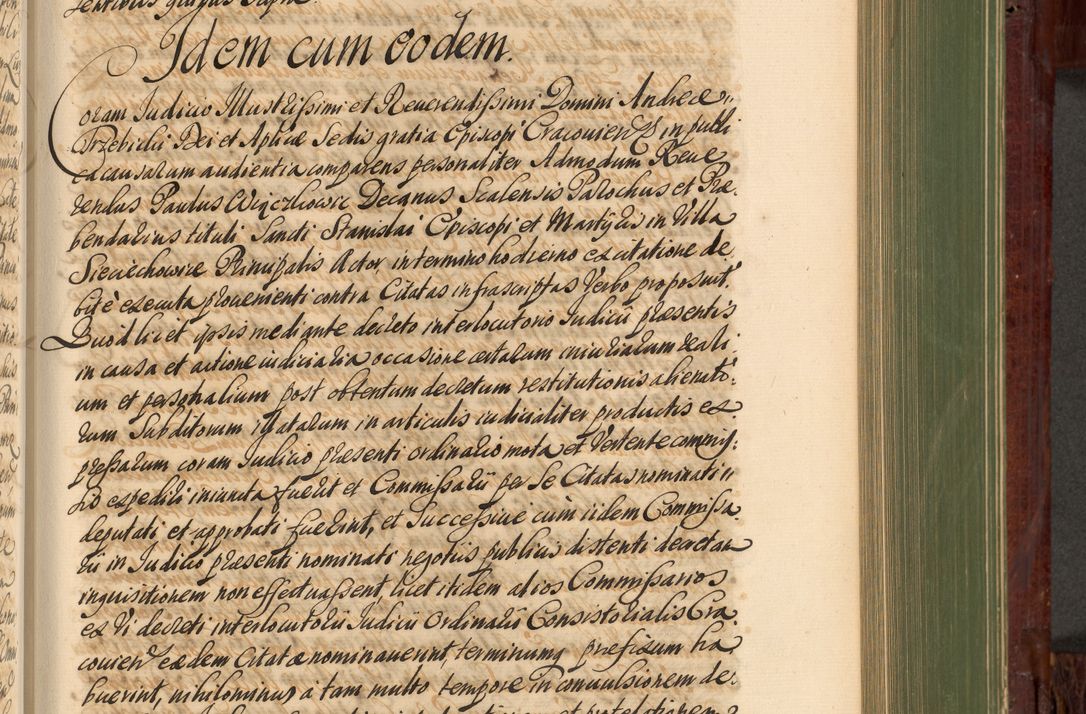 Idem cum eodem.
Coram Judicio Illustrissimi et Reverendissimi Domini Andreæ
Trzebicki Dei et Aplicæ Sedis gratia Episcopi Cracovien in publi
ca causarum audientia comparens personaliter Admodum Reve
rendus Paulus Decanus Scalensis Parochus et Præ.
bendarius tituli Sancti Stanislai Episcopi et Martyris in Villa
Sieciechowice Principalis Actor in termino hodierno ex citatione de
bitè executa provenienti contra Citatas infrascriptas Verbo proposuit.
Quod licet ipsis mediante decreto interlocutorio Judicii præsentis
in causa et actione iudiciaria occasione certarum iniuriarum reali
um et personalium post obtentum decretum restitutionis alienato
rum Subditorum illatarum in articulis iudicialiter productis ex
pressarum coram Judicio præsenti ordinario mota et Vertente commis
sio expediri iniuncta fuerit et Commissarii per Se Citatas nominati
deputati et approbati fuerint, et Successive cùm iidem Commissa.
rii in Judicio præsenti nominati negotiis publicis distenti decretam
inquisitionem non effectuassent, licet itidem alios Commissarios
ex Vi decreti interlocutorii Judicii Ordinarii Consistorialis Cra
covien eædem Citatæ nominaverint, terminumq præfixum ha
buerint, nihilominus à tam multo tempore in convulsionem de